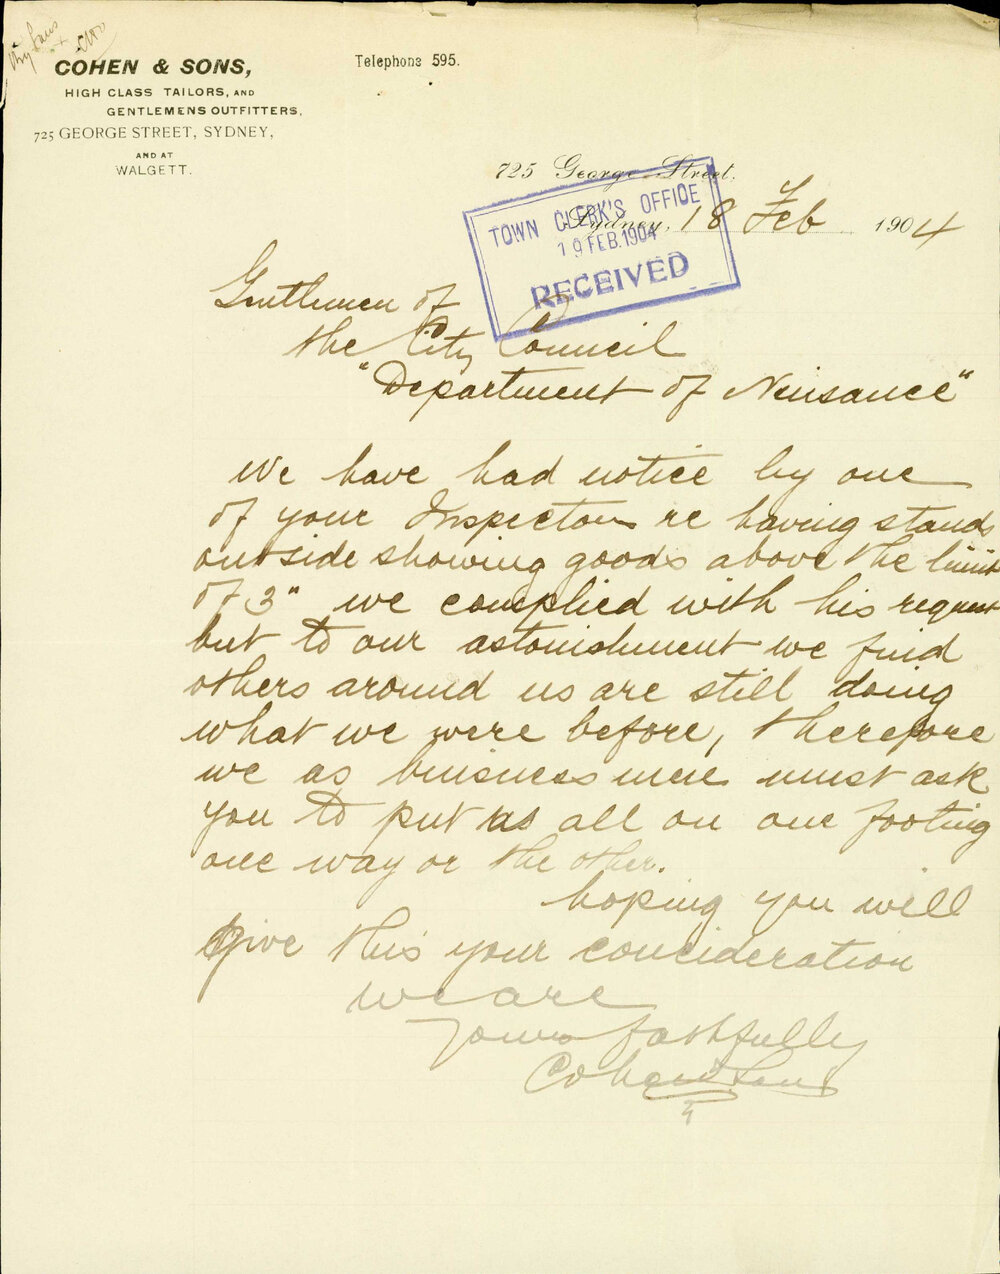 COHEN & SONS,
HIGH CLASS TAILORS, AND
GENTLEMENS OUTFITTERS,
725 GEORGE STREET, SYDNEY,
AND AT
WALGETT.
Telephone 595.
725 George Street.
Sydney, 18 Feb 1904
TOWN CLERK'S OFFICE
19 FEB. 1904
RECEIVED
Gentlemen of
the City Council
"Department of Neusance"
We have had notice by one
of your Inspectors re having stands
outside showing goods above the limit
of 3" we complied with his request
but to our astonishment we find
others around us are still doing
what we were before, therefore
we as buisness men must ask
you to put us all on one footing
one way or the other.
hoping you will
Give this your concideration
we are
Yours faithfully
Cohen & Sons